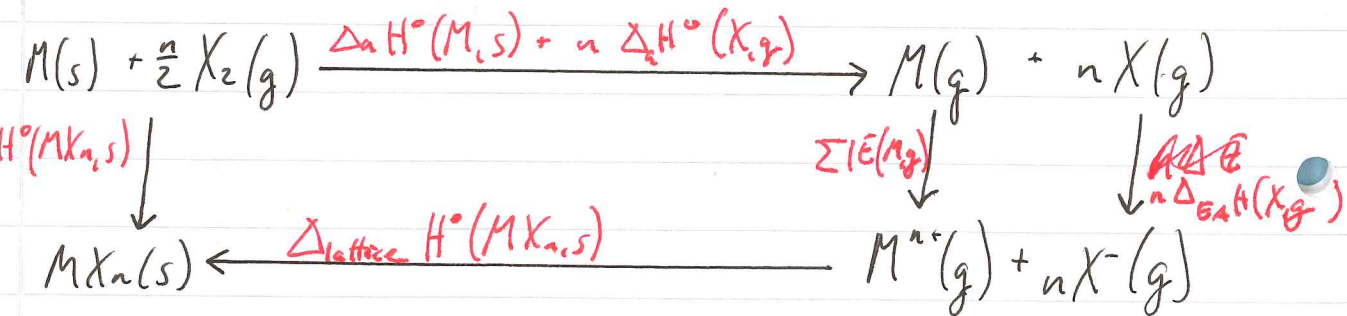 M(s) + n/2 X₂(g) ΔₐH°(M,s) + n ΔₐH°(X,g) M(g) + n X(g)
H°(MXₙ,s) ΣIE(M,g) n Δ_EA H(X,g)
MXₙ(s) Δ_lattice H°(MXₙ,s) Mⁿ⁺(g) + nX⁻(g)